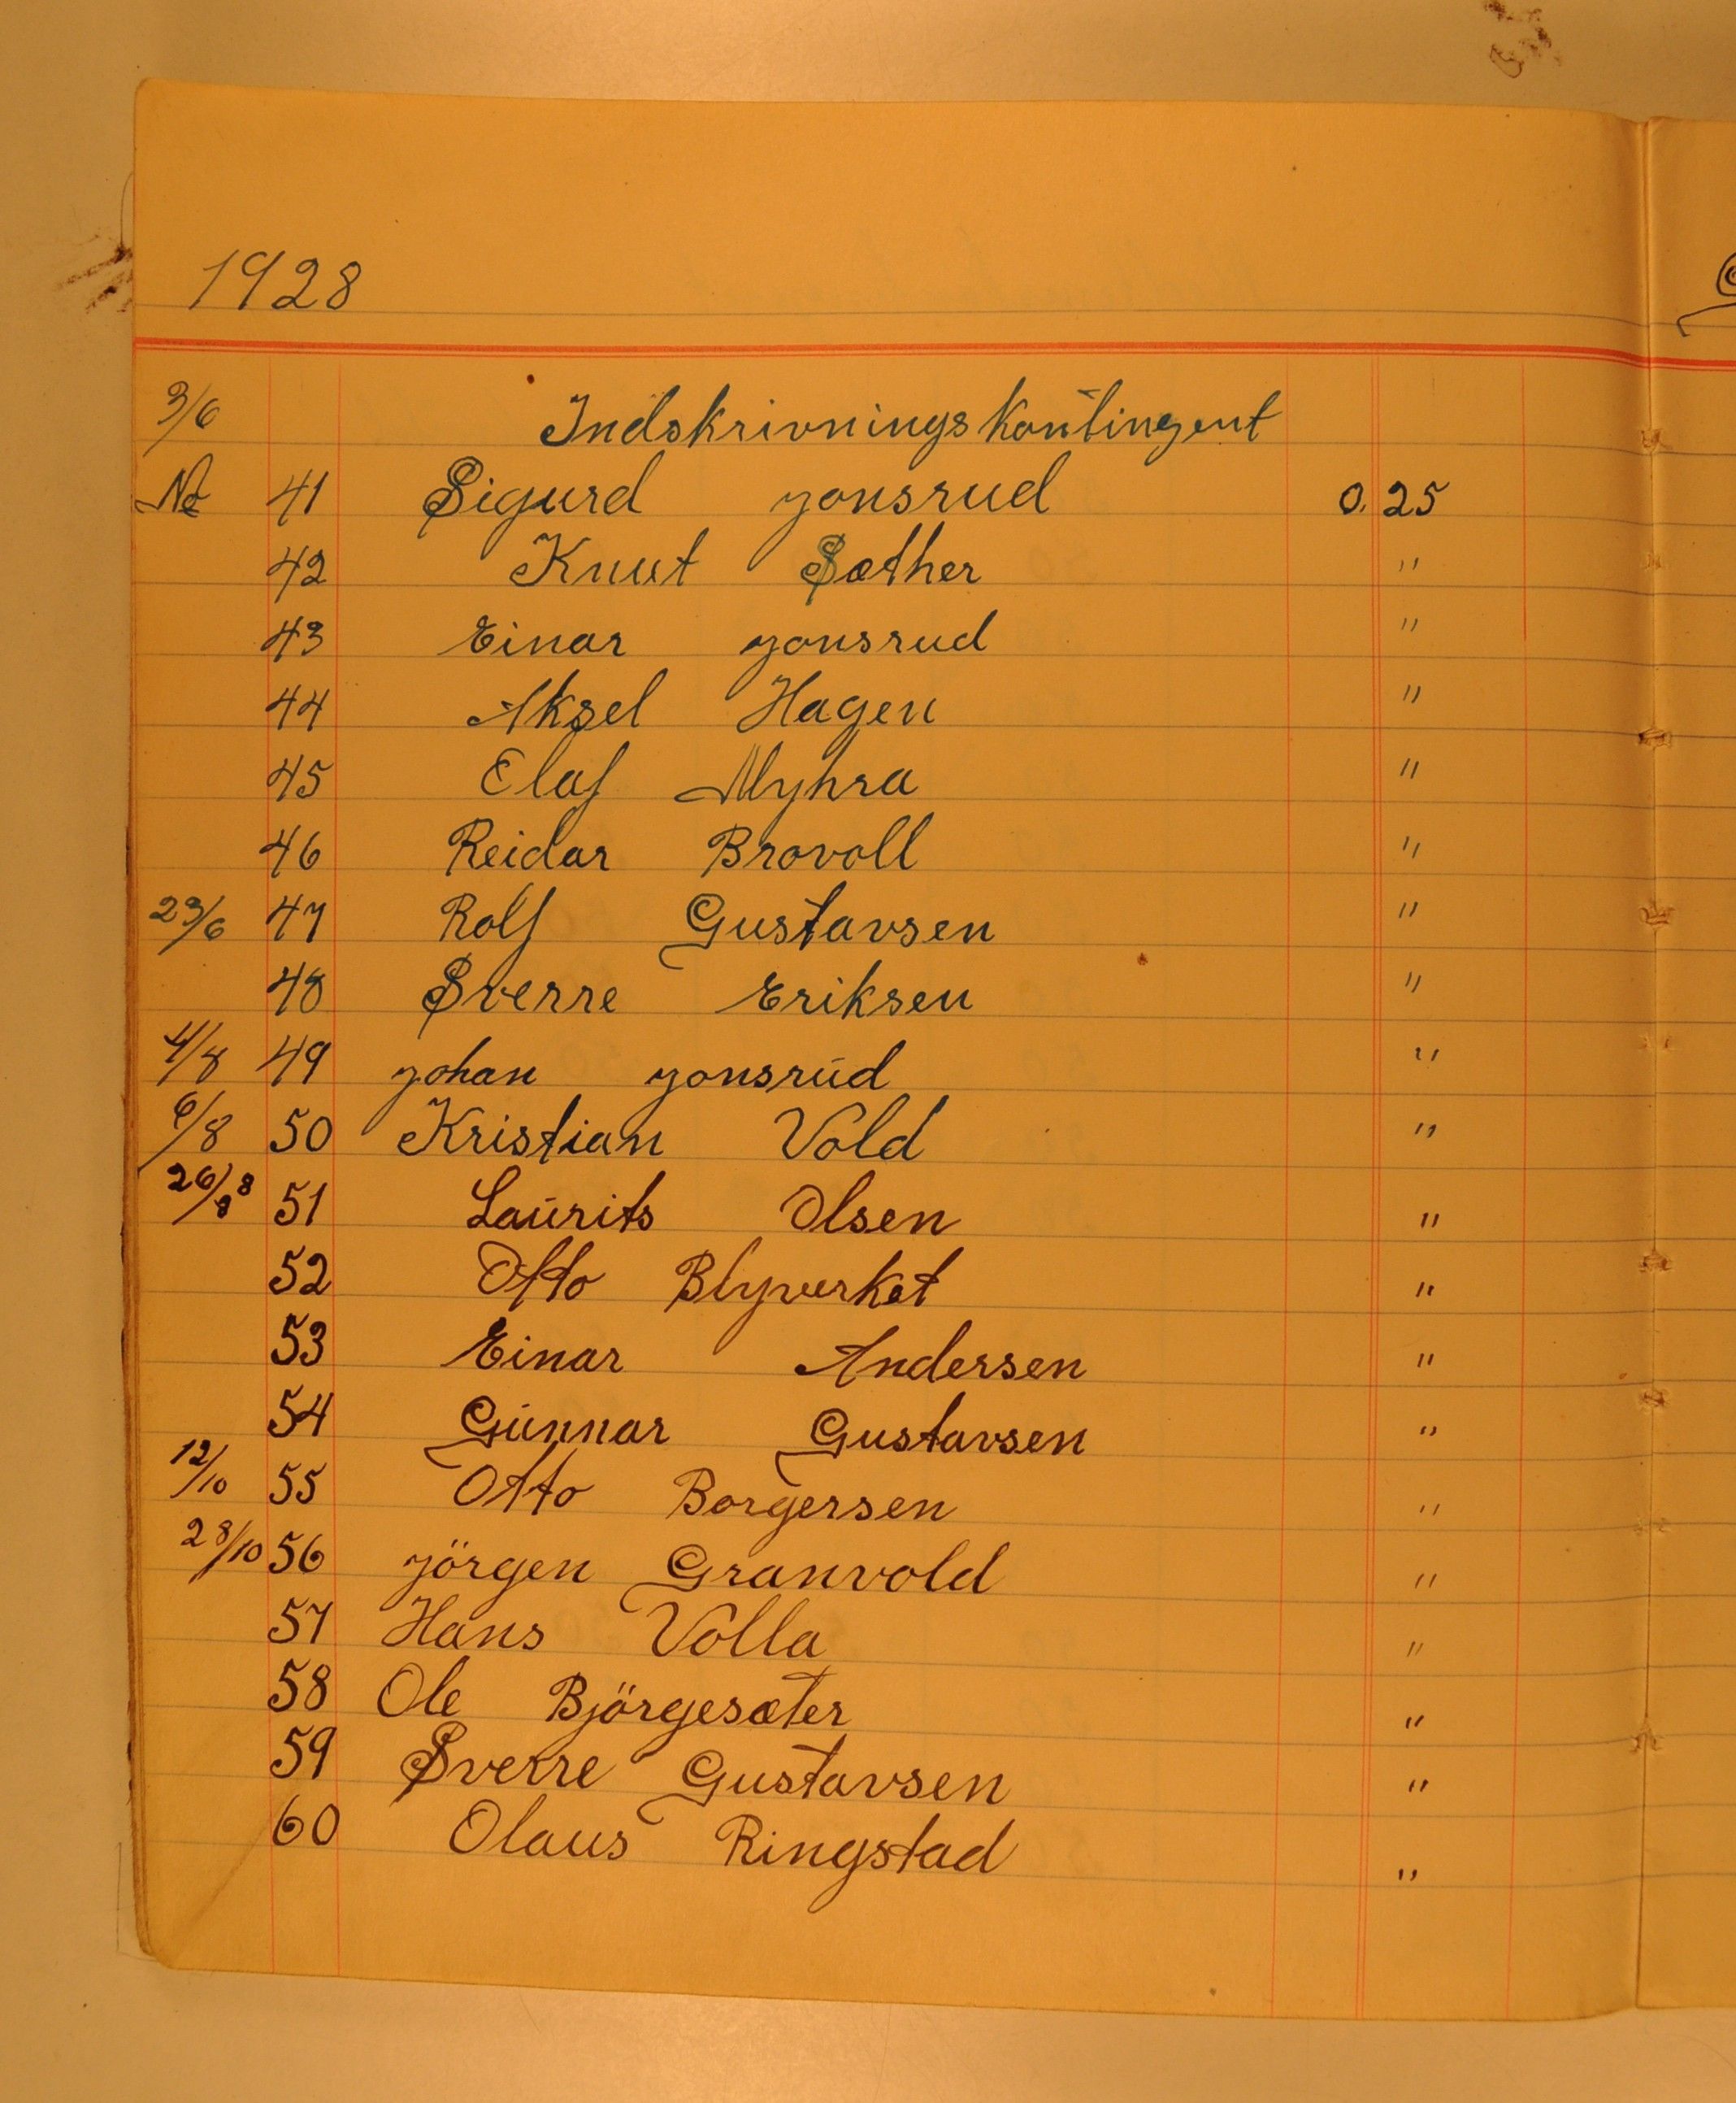 1928
3/6 Indskrivningskontingent
No 41 Sigurd Jonsrud 0.25
42 Knut Sæther "
43 Einar Jonsrud "
44 Aksel Hagen "
45 Elaf Myhra "
46 Reidar Brovoll "
23/6 47 Rolf Gustavsen "
48 Sverre Eriksen "
4/8 49 Johan Jonsrud "
6/8 50 Kristian Vold "
26/8 8 51 Laurits Olsen "
52 Otto Blyverket "
53 Einar Andersen "
54 Gunnar Gustavsen "
12/10 55 Otto Borgersen "
28/10 56 Jörgen Granvold "
57 Hans Volla "
58 Ole Björgesæter "
59 Sverre Gustavsen "
60 Olaus Ringstad "